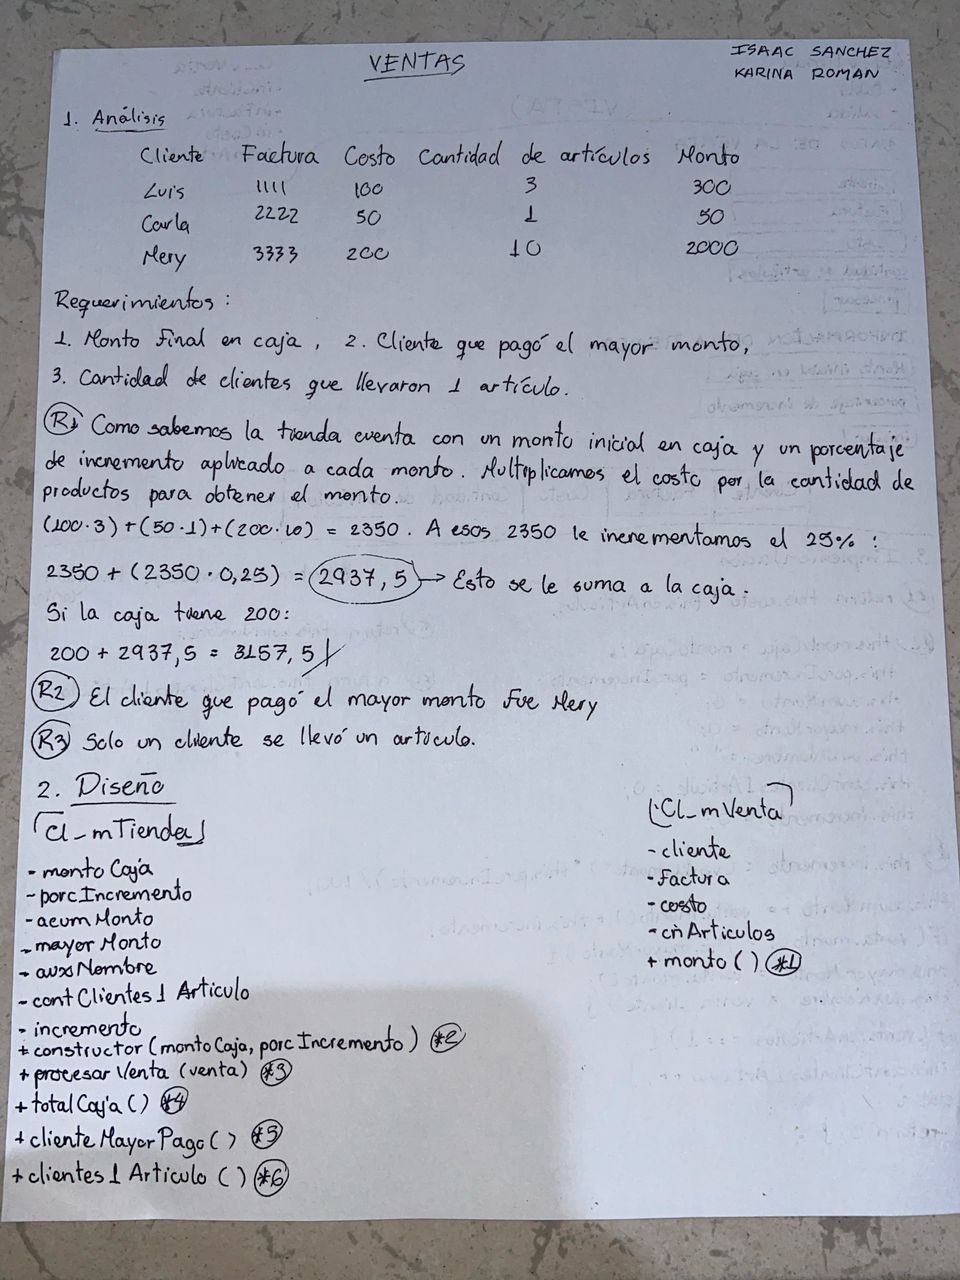 VENTAS
ISAAC SANCHEZ
KARINA ROMAN
1. Análisis
Cliente Factura Costo Cantidad de artículos Monto
Luis 1111 100 3 300
Carla 2222 50 1 50
Mery 3333 200 10 2000
Requerimientos:
1. Monto final en caja, 2. Cliente que pagó el mayor monto,
3. Cantidad de clientes que llevaron 1 artículo.
R1 Como sabemos la tienda cuenta con un monto inicial en caja y un porcentaje
de incremento aplicado a cada monto. Multiplicamos el costo por la cantidad de
productos para obtener el monto.
(100·3)+(50·1)+(200·10) = 2350. A esos 2350 le incrementamos el 25%:
2350 + (2350·0,25) = 2937,5 → Esto se le suma a la caja.
Si la caja tiene 200:
200 + 2937,5 = 3157,5
R2 El cliente que pagó el mayor monto fue Mery
R3 Solo un cliente se llevó un artículo.
2. Diseño
Cl_mTienda
- monto Caja
- porcIncremento
- acum Monto
- mayor Monto
- auxNombre
- cont Clientes 1 Articulo
- incremento
+ constructor (monto Caja, porc Incremento) *2
+ procesar Venta (venta) *3
+ total Caja () *4
+ cliente Mayor Pago () *5
+ clientes 1 Articulo () *6
Cl_mVenta
- cliente
- factura
- costo
- cnArticulos
+ monto () *1